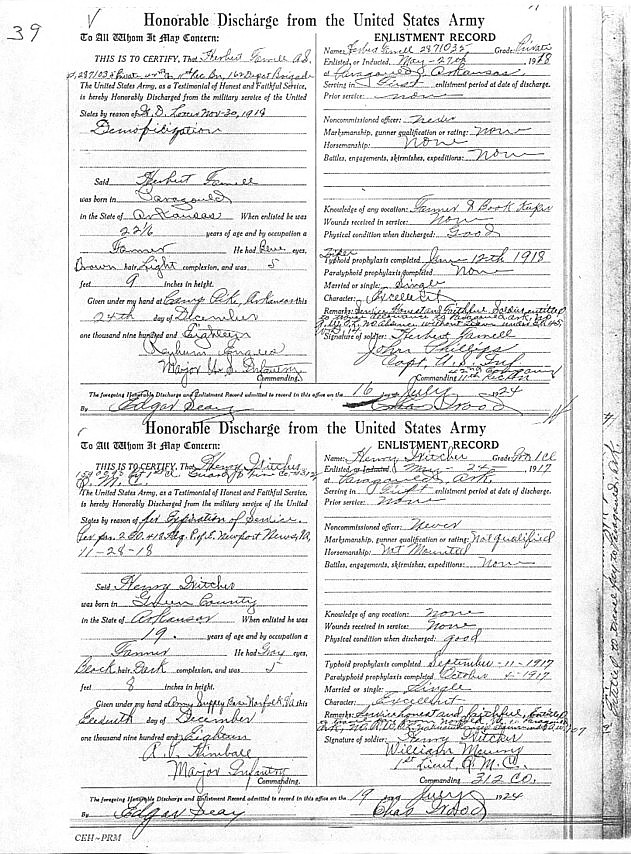 39
Honorable Discharge from the United States Army
To All Whom It May Concern:
THIS IS TO CERTIFY, That Herbert Farrell A.S.
2871035 Private 162 Depot Brigade
The United States Army, as a Testimonial of Honest and Faithful Service,
is hereby Honorably Discharged from the military service of the United
States by reason of W.D. Nov-30, 1918
Demobilization
Said Herbert Farrell
was born in Paragould
in the State of Arkansas When enlisted he was
22 years of age and by occupation a
Farmer He had Blue eyes,
Brown hair, Light complexion, and was 5
feet 9 inches in height.
Given under my hand at Camp Pike, Arkansas this
24th day of December
one thousand nine hundred and Eighteen
Major U.S. Infantry
Commanding.
ENLISTMENT RECORD
Name: Herbert Farrell 2871035 Grade: Private
Enlisted, or Inducted, May-27th 1918
at Paragould, Arkansas
Serving in First enlistment period at date of discharge.
Prior service: none
Noncommissioned officer: never
Marksmanship, gunner qualification or rating: none
Horsemanship: None
Battles, engagements, skirmishes, expeditions: None
Knowledge of any vocation: Farmer & Book Keeper
Wounds received in service: None
Physical condition when discharged: Good
Typhoid prophylaxis completed June 12th 1918
Paratyphoid prophylaxis completed None
Married or single: Single
Character: Excellent
Remarks: Service Honest and Faithful, Soldier entitled
to travel Paragould, Ark.
Signature of soldier: Herbert Farrell
John Phillips
Capt. U.S. Inf.
Commanding
The foregoing Honorable Discharge and Enlistment Record admitted to record in this office on the 16 day July 1924
By Edgar Seay Chas Wood
Honorable Discharge from the United States Army
To All Whom It May Concern:
THIS IS TO CERTIFY, That Henry Gritcher
Q. M. C.
The United States Army, as a Testimonial of Honest and Faithful Service,
is hereby Honorably Discharged from the military service of the United
States by reason of for Expiration of Service.
Newport News, Va,
11-28-18
Said Henry Gritcher
was born in Green County
in the State of Arkansas When enlisted he was
19 years of age and by occupation a
Farmer He had Gray eyes,
Black hair, Dark complexion, and was 5
feet 8 inches in height.
Given under my hand at Army Supply Base Norfolk Va this
Eleventh day of December
one thousand nine hundred and Eighteen
Kimball
Major Infantry
Commanding.
ENLISTMENT RECORD
Name: Henry Gritcher Grade: Pvt. 1 Cl
Enlisted, or Inducted, May-24- 1917
at Paragould, Ark.
Serving in First enlistment period at date of discharge.
Prior service: None
Noncommissioned officer: Never
Marksmanship, gunner qualification or rating: Not qualified
Horsemanship: Not Mounted
Battles, engagements, skirmishes, expeditions: None
Knowledge of any vocation: None
Wounds received in service: None
Physical condition when discharged: good
Typhoid prophylaxis completed September-11-1917
Paratyphoid prophylaxis completed October 1917
Married or single: Single
Character: Excellent
Remarks: Service honest and faithful, Entitled
Signature of soldier: Henry Gritcher
William
1st Lieut. Q. M. C.
Commanding 312 CO.
The foregoing Honorable Discharge and Enlistment Record admitted to record in this office on the 19 day July 1924
By Edgar Seay Chas Wood
CEH~PRM